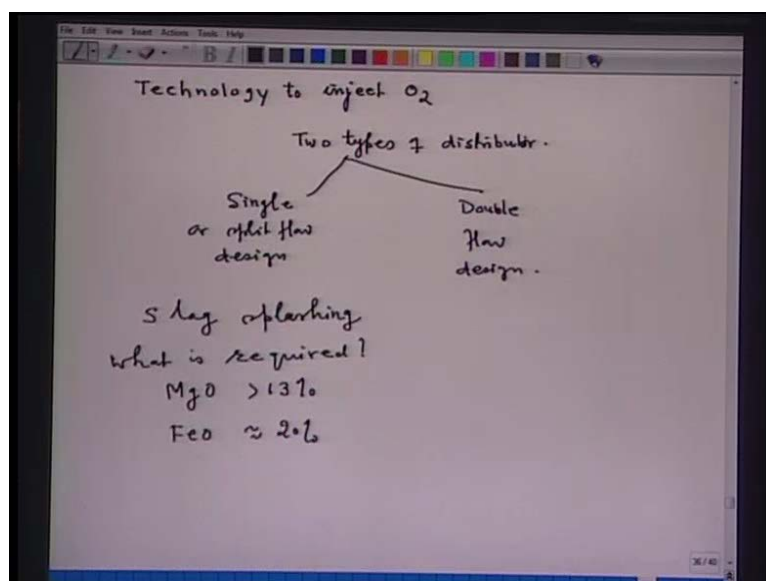 File Edit View Insert Actions Tools Help
B I
Technology to inject O2
Two types of distributor.
Single
or split flow
design
Double
flow
design.
Slag splashing
what is required?
MgO >13%
FeO ≈ 20%
36/40